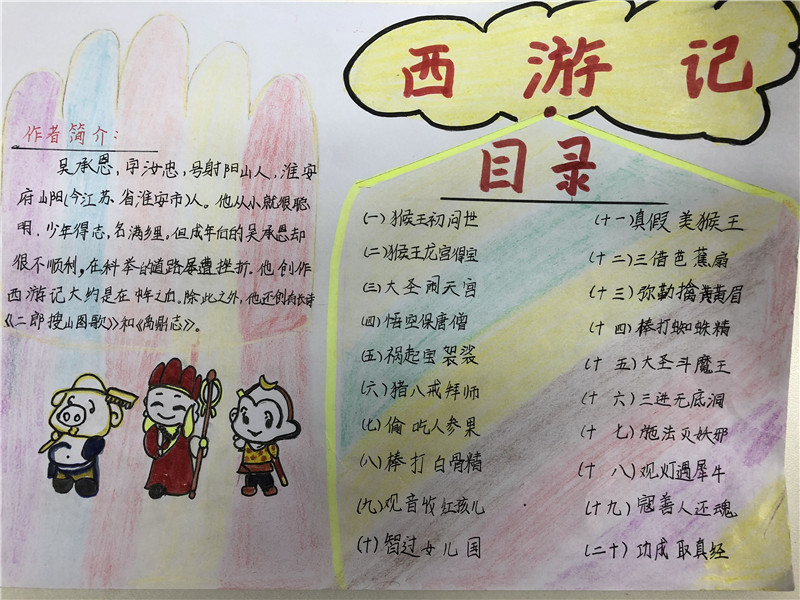 西游记
作者简介:
吴承恩,字汝忠,号射阳山人,淮安
府山阳(今江苏省淮安市)人。他从小就很聪
明,少年得志,名满乡里。但成年后的吴承恩却
很不顺利,在科举的道路屡遭挫折。他创作
西游记大约是在中年之后。除此之外,他还创有长诗
《二郎搜山图歌》和《禹鼎志》。
目录
(一)猴王初问世
(二)猴王龙宫得宝
(三)大圣闹天宫
(四)悟空保唐僧
(五)祸起宝袈裟
(六)猪八戒拜师
(七)偷吃人参果
(八)棒打白骨精
(九)观音收红孩儿
(十)智过女儿国
(十一)真假美猴王
(十二)三借芭蕉扇
(十三)弥勒擒黄眉
(十四)棒打蜘蛛精
(十五)大圣斗魔王
(十六)三进无底洞
(十七)施法灭妖邪
(十八)观灯遇犀牛
(十九)寇善人还魂
(二十)功成取真经